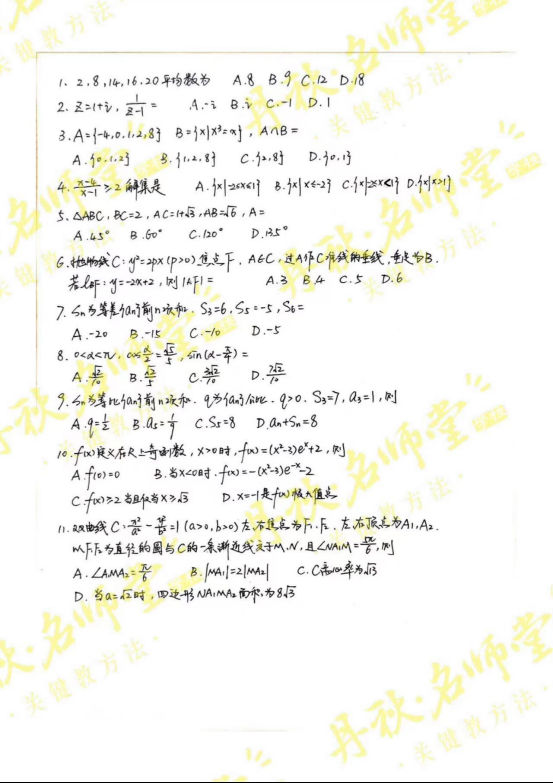 1. 2,8,14,16,20平均数为 A.8 B.9 C.12 D.18
2. z=1+i, 1/(z-1) = A.-i B.i C.-1 D.1
3. A={-4,0,1,2,8} B={x|x³=x}, A∩B=
A.{0,1,2} B.{1,2,8} C.{2,8} D.{0,1}
4. (x-4)/(x-1)≥2解集是 A.{x|-2≤x≤1} B.{x|x≤-2} C.{x|-2≤x<1} D.{x|x>1}
5. △ABC, BC=2, AC=1+√3, AB=√6, A=
A.45° B.60° C.120° D.135°
6. 抛物线C: y²=2px(p>0)焦点F, A∈C, 过A作C准线的垂线, 垂足为B.
若l_BF: y=-2x+2, 则|AF|= A.3 B.4 C.5 D.6
7. Sn为等差{an}前n项和. S₃=6, S₅=-5, S₆=
A.-20 B.-15 C.-10 D.-5
8. 0<α<π, cos α/2=√5/5, sin(α-π/4)=
A.√2/10 B.√2/5 C.3√2/10 D.7√2/10
9. Sn为等比{an}前n项和. q为{an}公比. q>0. S₃=7, a₃=1, 则
A.q=1/2 B.a₅=1/9 C.S₅=8 D.an+Sn=8
10. f(x)定义在R上奇函数, x>0时, f(x)=(x²-3)eˣ+2, 则
A.f(0)=0 B.当x<0时, f(x)=-(x²-3)e⁻ˣ-2
C.f(x)≥2当且仅当x≥√3 D.x=-1是f(x)极大值点
11. 双曲线C: x²/a²-y²/b²=1(a>0,b>0)左、右焦点为F₁、F₂. 左、右顶点为A₁,A₂.
以F₁F₂为直径的圆与C的一条渐近线交于M、N, 且∠NA₁M=5π/6, 则
A.∠A₁MA₂=π/6 B.|MA₁|=2|MA₂| C. C离心率为√13
D. 当a=√2时, 四边形NA₁MA₂面积为8√3
丹秋·名师堂
·关键教方法·